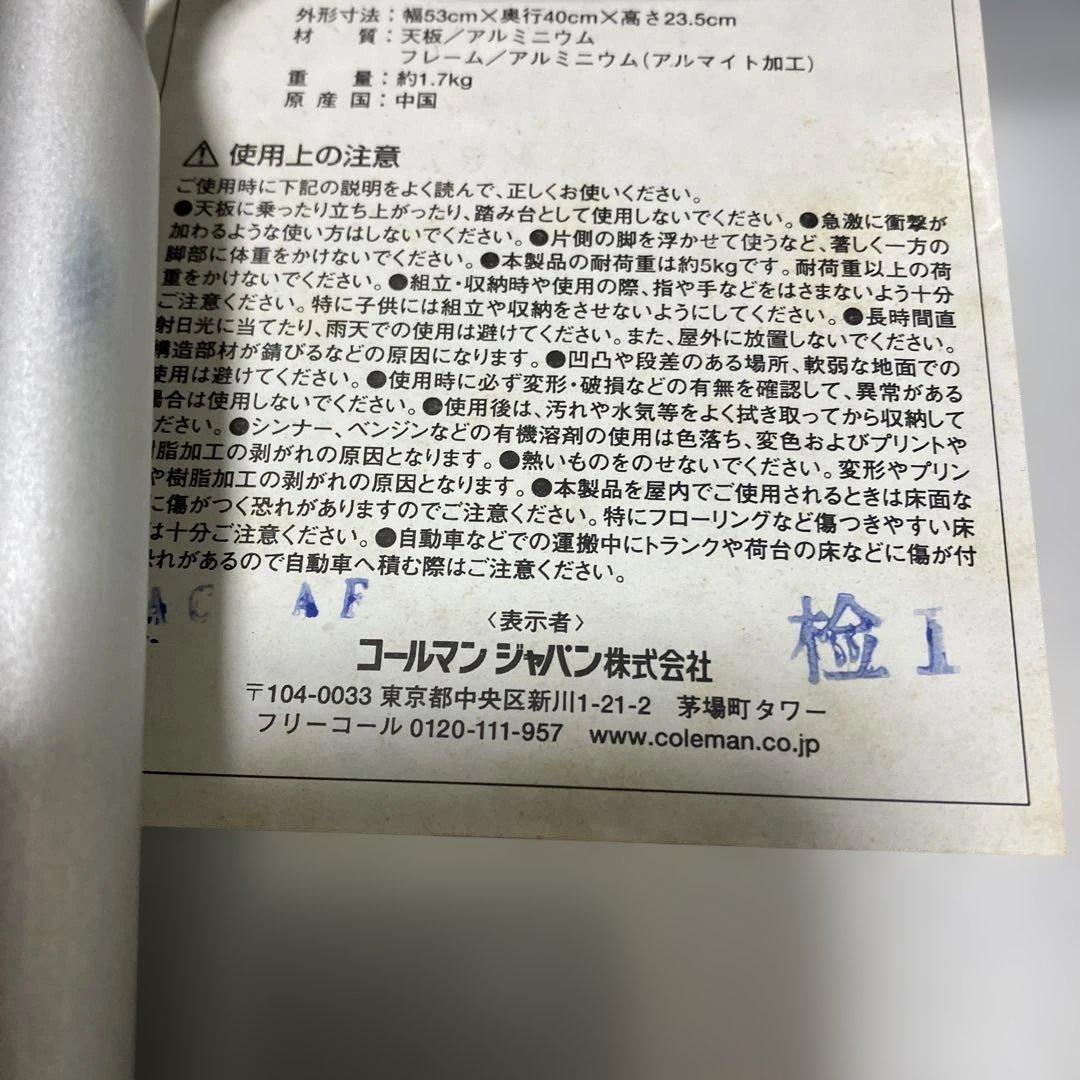 外形寸法：幅53cm×奥行40cm×高さ23.5cm
材　質：天板／アルミニウム
フレーム／アルミニウム(アルマイト加工)
重　量：約1.7kg
原産国：中国
⚠ 使用上の注意
ご使用時に下記の説明をよく読んで、正しくお使いください。
●天板に乗ったり立ち上がったり、踏み台として使用しないでください。●急激に衝撃が
加わるような使い方はしないでください。●片側の脚を浮かせて使うなど、著しく一方の
脚部に体重をかけないでください。●本製品の耐荷重は約5kgです。耐荷重以上の荷
重をかけないでください。●組立・収納時や使用の際、指や手などをはさまないよう十分
ご注意ください。特に子供には組立や収納をさせないようにしてください。●長時間直
射日光に当てたり、雨天での使用は避けてください。また、屋外に放置しないでください。
構造部材が錆びるなどの原因になります。●凹凸や段差のある場所、軟弱な地面での
使用は避けてください。●使用時に必ず変形・破損などの有無を確認して、異常がある
場合は使用しないでください。●使用後は、汚れや水気等をよく拭き取ってから収納して
ださい。●シンナー、ベンジンなどの有機溶剤の使用は色落ち、変色およびプリントや
脂加工の剥がれの原因となります。●熱いものをのせないでください。変形やプリン
や樹脂加工の剥がれの原因となります。●本製品を屋内でご使用されるときは床面な
に傷がつく恐れがありますのでご注意ください。特にフローリングなど傷つきやすい床
は十分ご注意ください。●自動車などでの運搬中にトランクや荷台の床などに傷が付
恐れがあるので自動車へ積む際はご注意ください。
AC AF
〈表示者〉
検I
コールマン ジャパン株式会社
〒104-0033 東京都中央区新川1-21-2　茅場町タワー
フリーコール 0120-111-957　www.coleman.co.jp